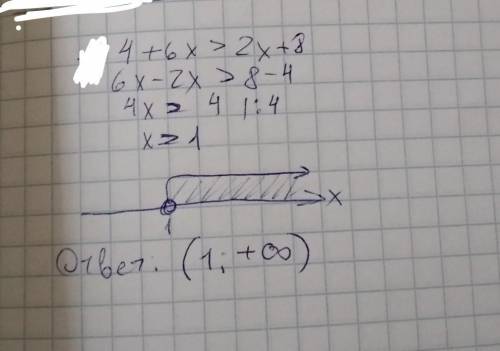 4 + 6x > 2x + 8
6x - 2x > 8 - 4
4x > 4 | : 4
x > 1
x
1
Ответ: (1; +∞)